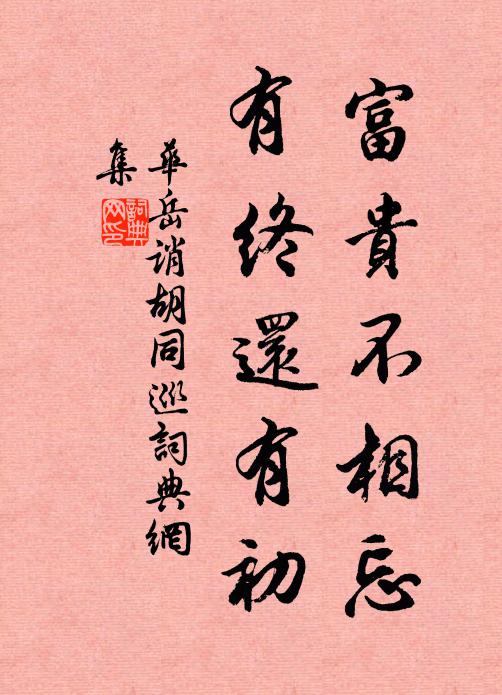 富貴不相忘
有終還有初
華岳誚胡同巡詞典網
集
詞典
网印